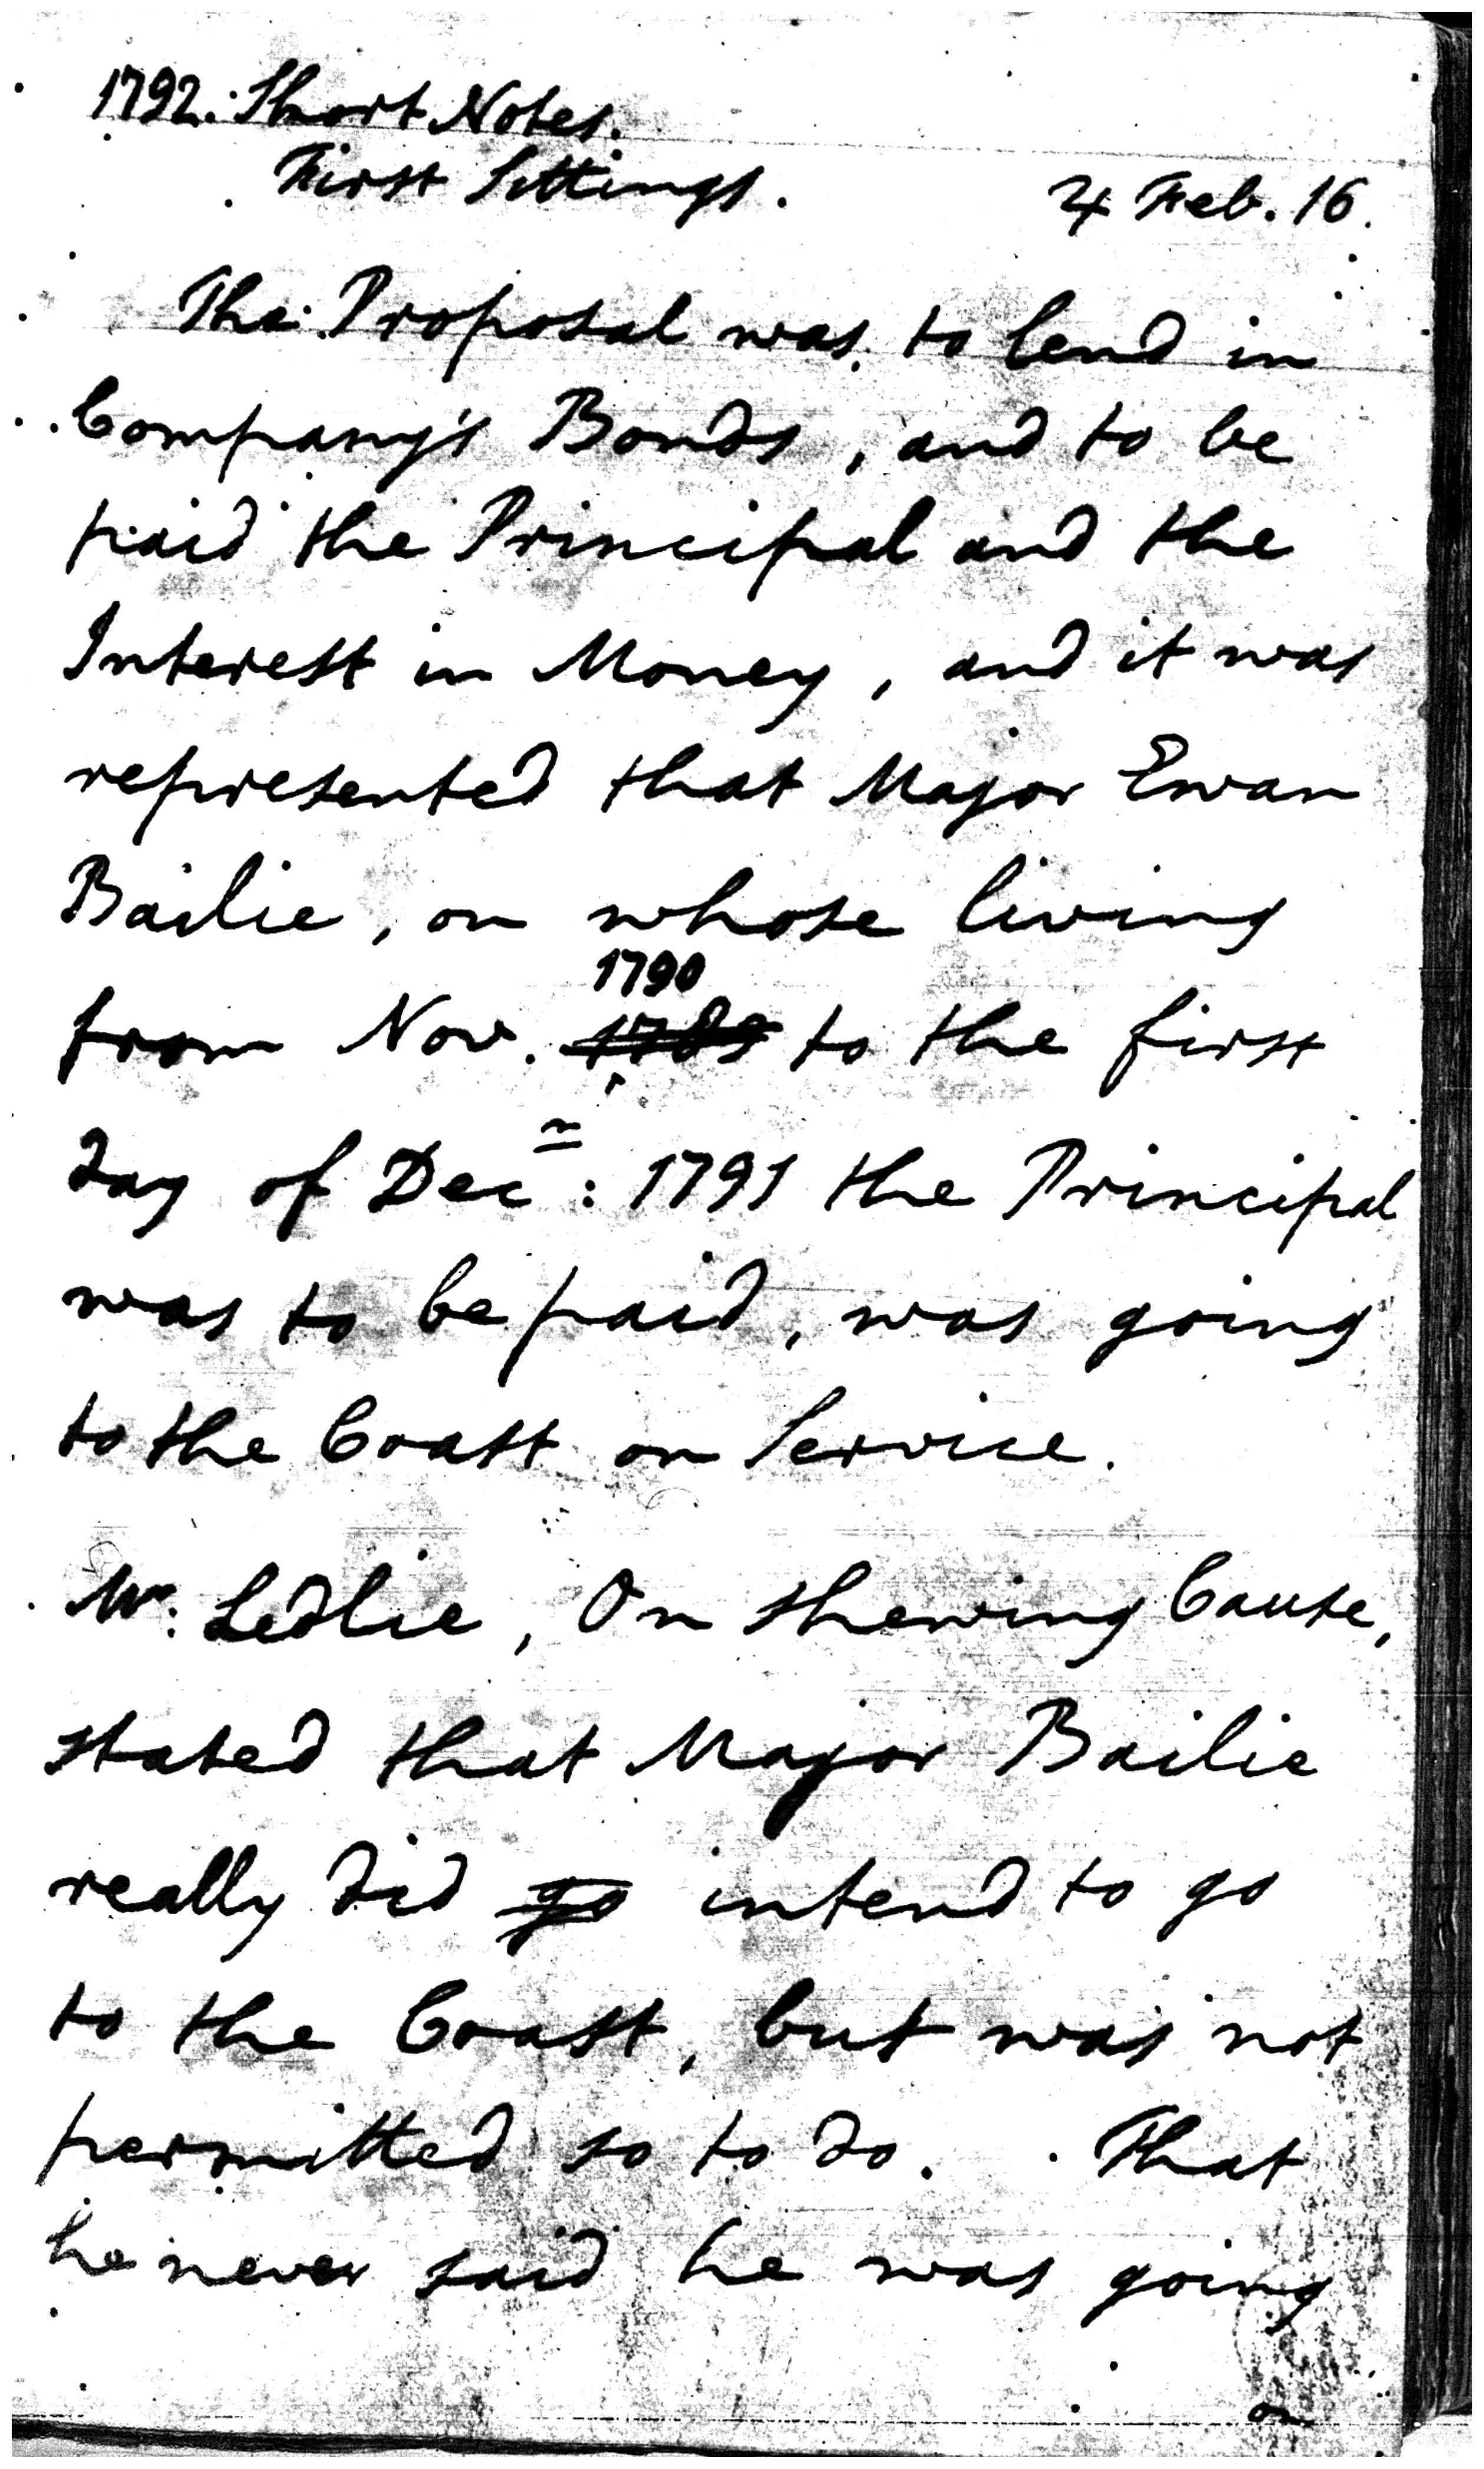 1792. Short Notes.
First Sittings. ♃ Feb. 16.
The Proposal was to lend in
Company's Bonds, and to be
paid the Principal and the
Interest in Money, and it was
represented that Major Ewan
Bailie, on whose living
1790
from Nov. 1789 to the first
day of Decr: 1791 the Principal
was to be paid, was going
to the Coast on Service.
Mr: Ledlie, On shewing Cause,
stated that Major Bailie
really did go intend to go
to the Coast, but was not
permitted so to do. That
he never said he was going
on